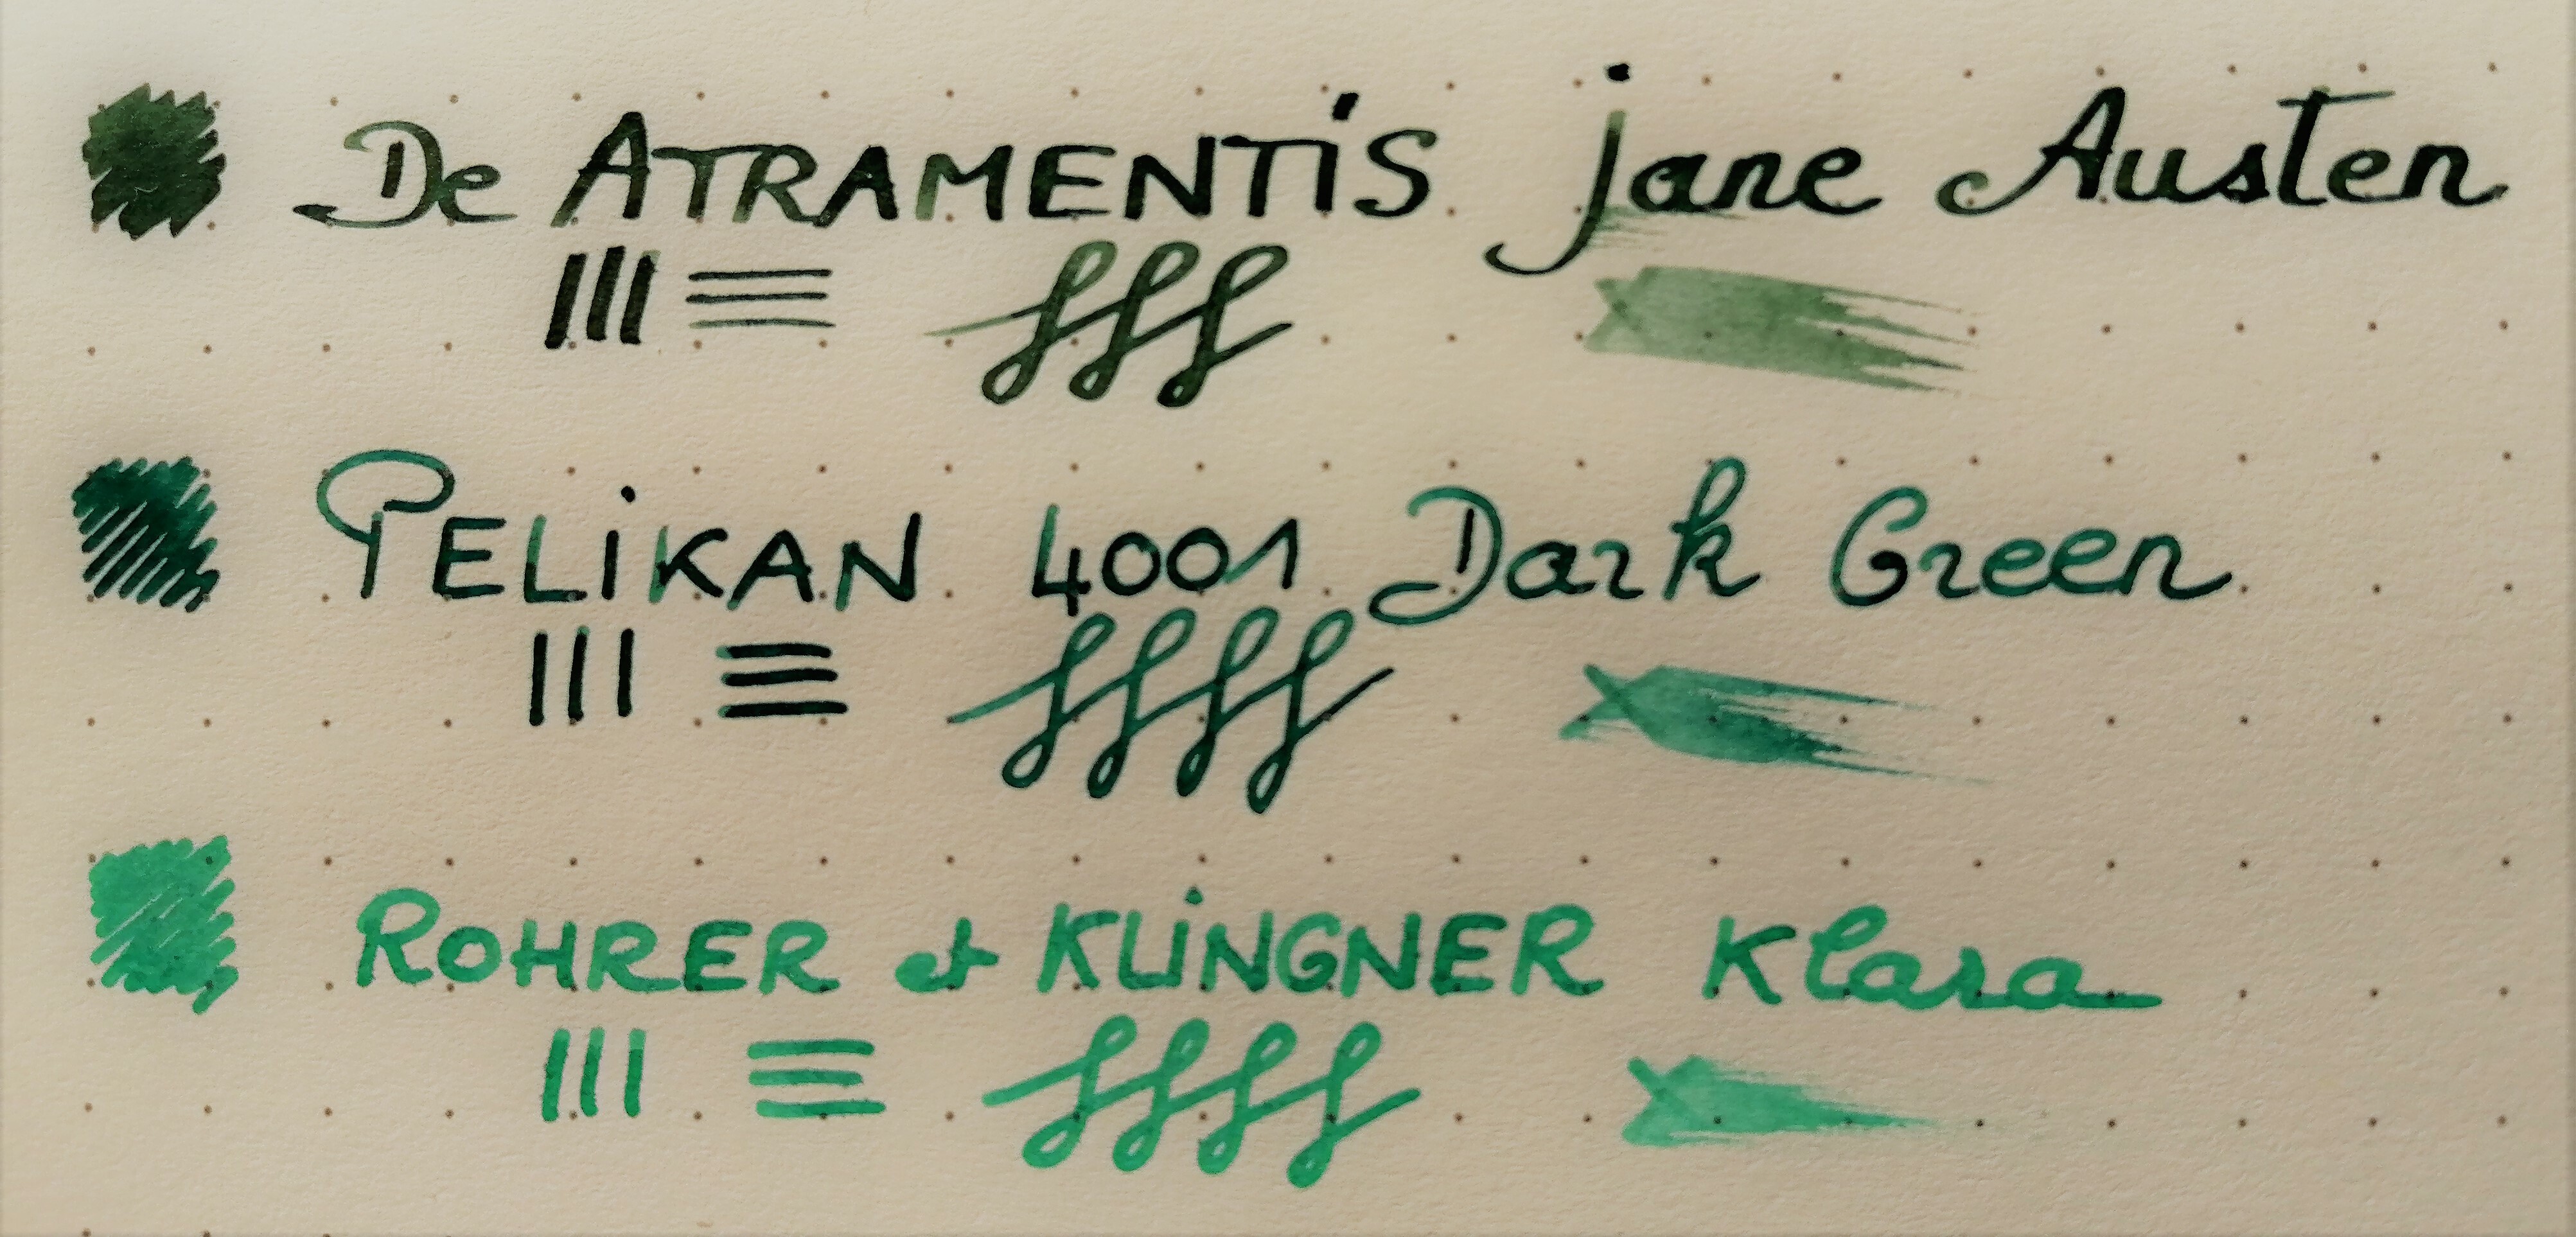 De ATRAMENTiS jane Austen
PELiKAN 4001 Dark Green
ROHRER et KLiNGNER Klara